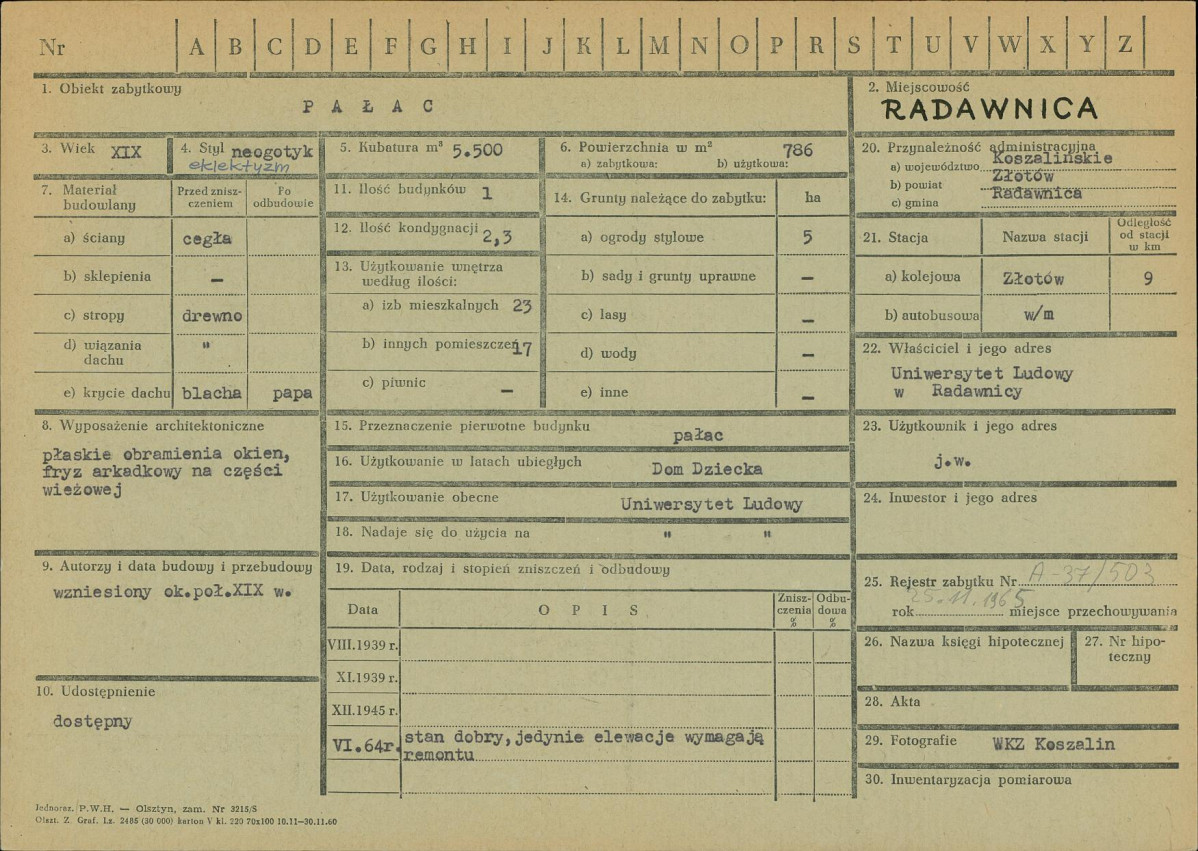 Nr A B C D E F G H I J K L M N O P R S T U V W X Y Z
1. Obiekt zabytkowy
PAŁAC
2. Miejscowość
RADAWNICA
3. Wiek XIX
4. Styl neogotyk
eklektyzm
5. Kubatura m³ 5.500
6. Powierzchnia w m² 786
a) zabytkowa: b) użytkowa:
20. Przynależność administracyjna
a) województwo Koszalińskie
b) powiat Złotów
c) gmina Radawnica
7. Materiał budowlany
Przed zniszczeniem
Po odbudowie
a) ściany cegła
b) sklepienia –
c) stropy drewno
d) wiązania dachu "
e) krycie dachu blacha papa
11. Ilość budynków 1
12. Ilość kondygnacji 2,3
13. Użytkowanie wnętrza
według ilości:
a) izb mieszkalnych 23
b) innych pomieszczeń 17
c) piwnic –
14. Grunty należące do zabytku: ha
a) ogrody stylowe 5
b) sady i grunty uprawne –
c) lasy –
d) wody –
e) inne –
21. Stacja Nazwa stacji
Odległość od stacji w km
a) kolejowa Złotów 9
b) autobusowa w/m
22. Właściciel i jego adres
Uniwersytet Ludowy
w Radawnicy
8. Wyposażenie architektoniczne
płaskie obramienia okien,
fryz arkadkowy na części
wieżowej
15. Przeznaczenie pierwotne budynku pałac
16. Użytkowanie w latach ubiegłych Dom Dziecka
17. Użytkowanie obecne Uniwersytet Ludowy
18. Nadaje się do użycia na " "
23. Użytkownik i jego adres
j.w.
24. Inwestor i jego adres
9. Autorzy i data budowy i przebudowy
wzniesiony ok.poł.XIX w.
10. Udostępnienie
dostępny
19. Data, rodzaj i stopień zniszczeń i odbudowy
Data OPIS Zniszczenia % Odbudowa %
VIII.1939 r.
XI.1939 r.
XII.1945 r.
VI.64r. stan dobry,jedynie elewacje wymagają
remontu
25. Rejestr zabytku Nr A-37/503
rok 25.11.1965 miejsce przechowywania
26. Nazwa księgi hipotecznej
27. Nr hipoteczny
28. Akta
29. Fotografie WKZ Koszalin
30. Inwentaryzacja pomiarowa
Jednoraz. P.W.H. — Olsztyn, zam. Nr 3215/S
Olszt. Z. Graf. Lz. 2485 (30 000) karton V kl. 220 70x100 10.11—30.11.60